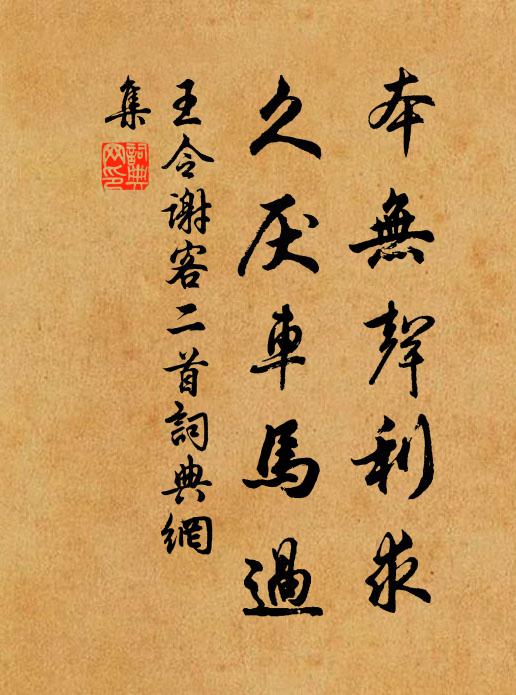 本無聲利求
久厌車馬過
王令謝客二首詞典網
集
詞典
网印